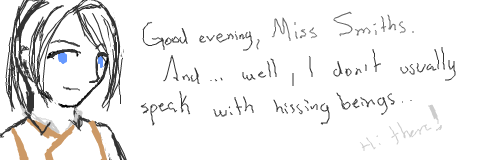 Good evening, Miss Smiths.
And... well, I don't usually
speak with hissing beings..
Hi there!